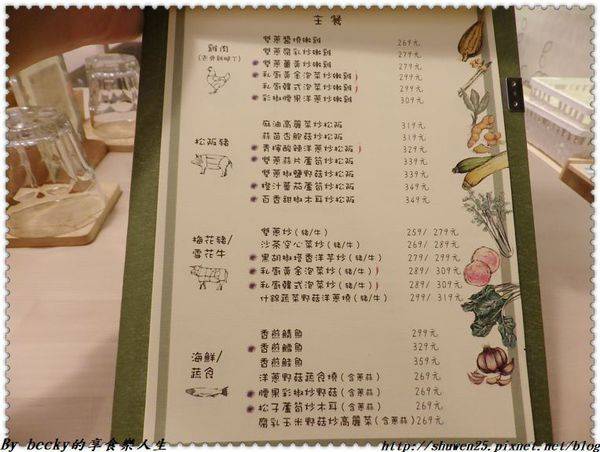 主餐
雞肉
(去骨雞腿丁)
雙蔥醬燒嫩雞 269元
雙蔥腐乳炒嫩雞 279元
雙蔥薑黃炒嫩雞 279元
私廚黃金泡菜炒嫩雞 299元
私廚韓式泡菜炒嫩雞 299元
彩椒腰果洋蔥炒嫩雞 309元
松阪豬
麻油高麗菜炒松阪 319元
蒜苗杏鮑菇炒松阪 319元
青檸酸辣洋蔥炒松阪 329元
雙蔥蒜炒蘆筍炒松阪 339元
雙蔥椒鹽野菇炒松阪 339元
橙汁蕃茄蘆筍炒松阪 349元
百香甜椒木耳炒松阪 349元
梅花豬/
雪花牛
雙蔥炒(豬/牛) 259/ 279元
沙茶空心菜炒(豬/牛) 269/ 289元
黑胡椒塔香洋芋炒(豬/牛) 279/ 299元
私廚黃金泡菜炒(豬/牛) 289/ 309元
私廚韓式泡菜炒(豬/牛) 289/ 309元
什錦蔬菜野菇洋蔥燒(豬/牛) 299/ 319元
海鮮/
蔬食
香煎鯖魚 299元
香煎鱸魚 329元
香煎鮭魚 359元
洋蔥野菇蔬食燒(含蔥蒜) 269元
腰果彩椒炒野菇(含蔥蒜) 269元
松子蘆筍炒木耳(含蔥蒜) 269元
腐乳玉米野菇炒高麗菜(含蔥蒜) 269元
By bccky的享食樂人生
http://shuwen25.pixnet.net/blog